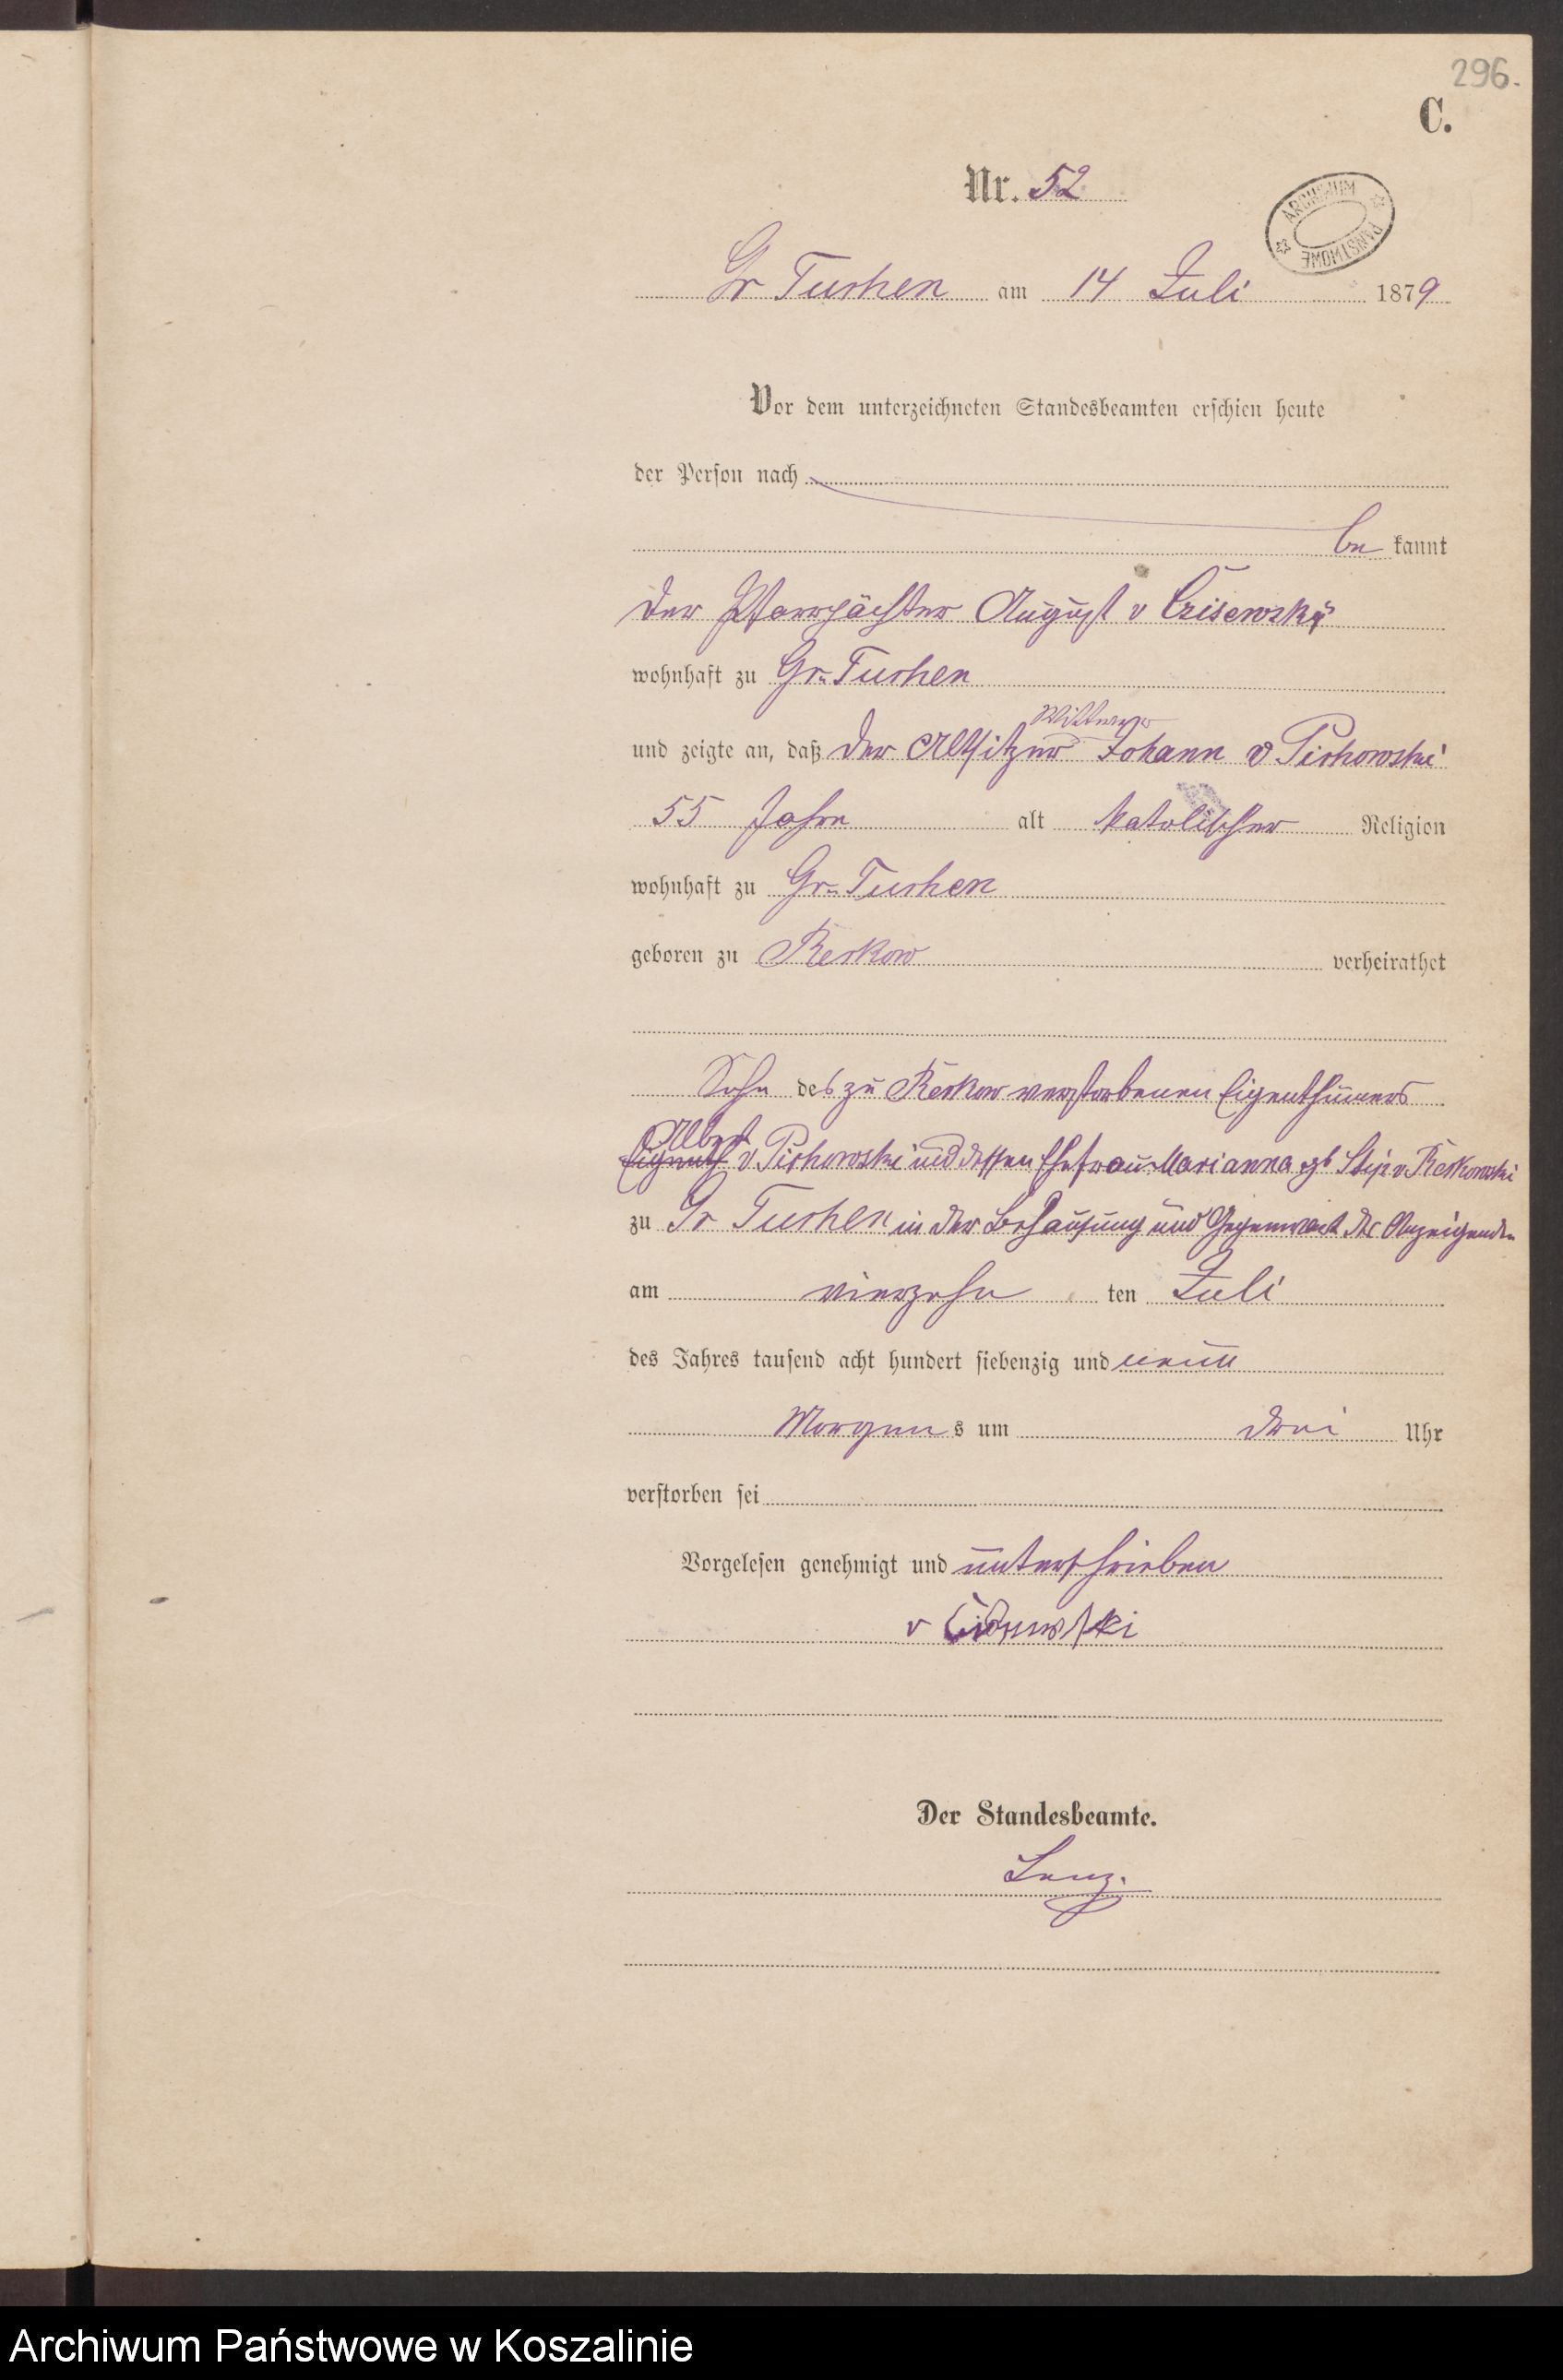 296.
C.
Nr. 52
ARCHIWUM PAŃSTWOWE
Gr Tuchen am 14 Juli 1879
Vor dem unterzeichneten Standesbeamten erschien heute
der Person nach
be kannt
der Pfarrpächter August v Czisewski
wohnhaft zu Gr. Tuchen
Wittwer
und zeigte an, daß der Altsitzer Johann v Pichowski
55 Jahre alt katolischer Religion
wohnhaft zu Gr. Tuchen
geboren zu Reckow verheirathet
Sohn des zu Reckow verstorbenen Eigenthümers
Albert
v Pichowski und dessen Ehefrau Marianna gb v Reckowski
zu Gr Tuchen in der Behausung und Gegenwart des Anzeigenden
am vierzehn ten Juli
des Jahres tausend acht hundert siebenzig und neun
Morgen s um drei Uhr
verstorben sei
Vorgelesen genehmigt und unterschrieben
v
Der Standesbeamte.
Lenz.
Archiwum Państwowe w Koszalinie